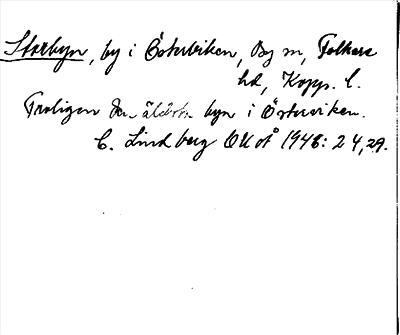 Storbyn, by i Österviken, By sn, Folkare
hd, Kopp. l.
Troligen den äldsta byn i Österviken.
C. Lindberg OUoÅ 1948: 24, 29.